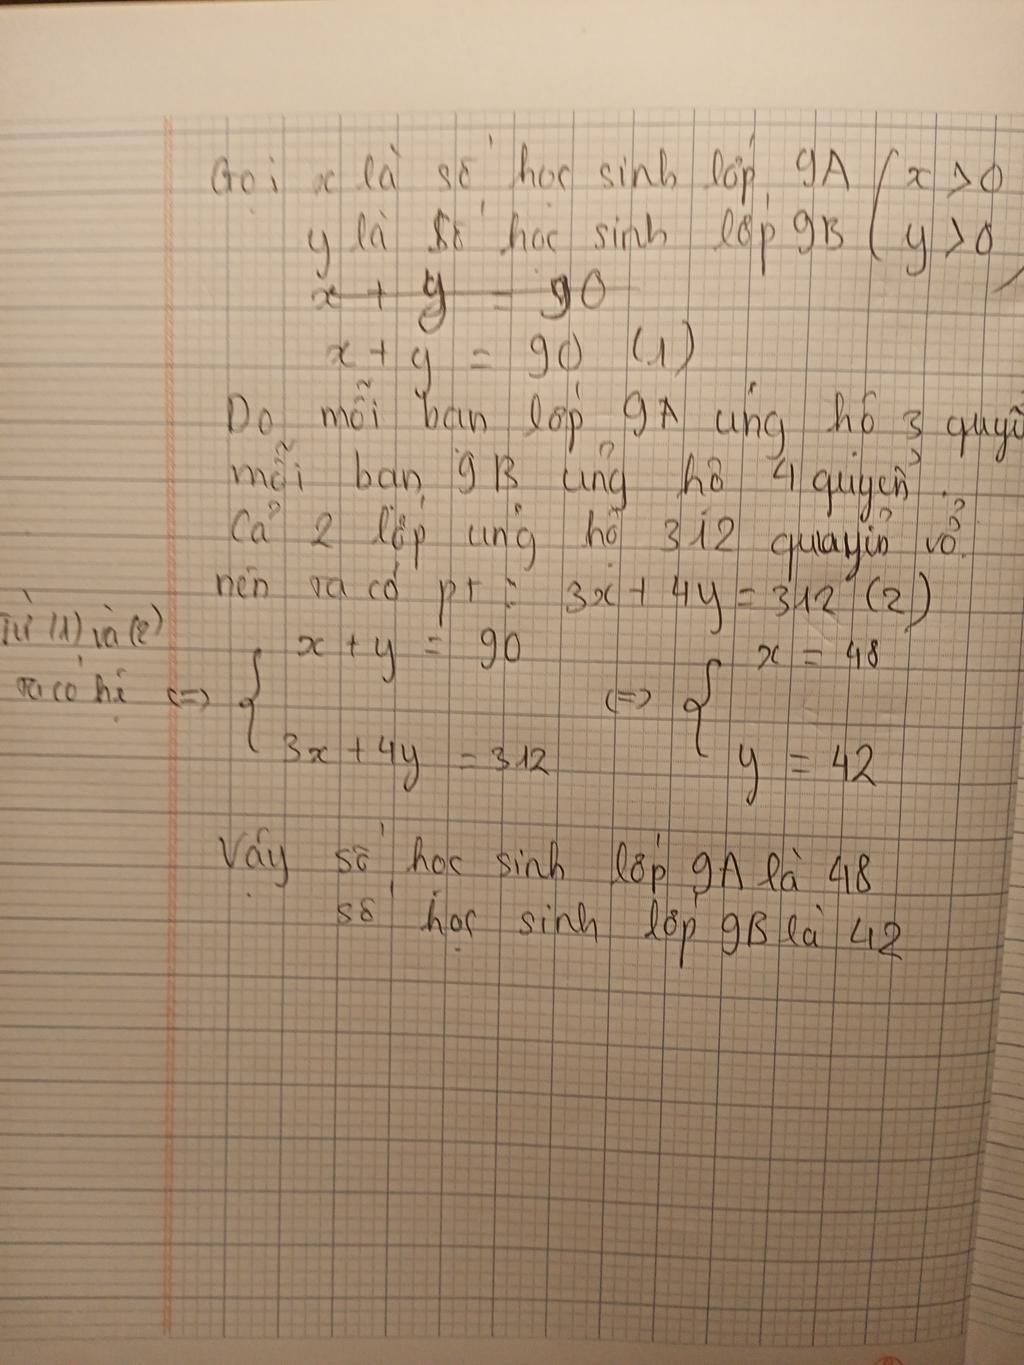 Gọi x là số học sinh lớp 9A (x > 0
y là số học sinh lớp 9B (y > 0
x + y = 90
x + y = 90 (1)
Do mỗi bạn lớp 9A ủng hô 3 quyể
mỗi bạn 9B ủng hô 4 quyển.
Cả 2 lớp ủng hô 312 quayển vở.
nên ta có pt : 3x + 4y = 312 (2)
Từ (1) và (2)
ta có hệ <=> { x + y = 90 <=> { x = 48
3x + 4y = 312 y = 42
Vậy số học sinh lớp 9A là 48
số học sinh lớp 9B là 42